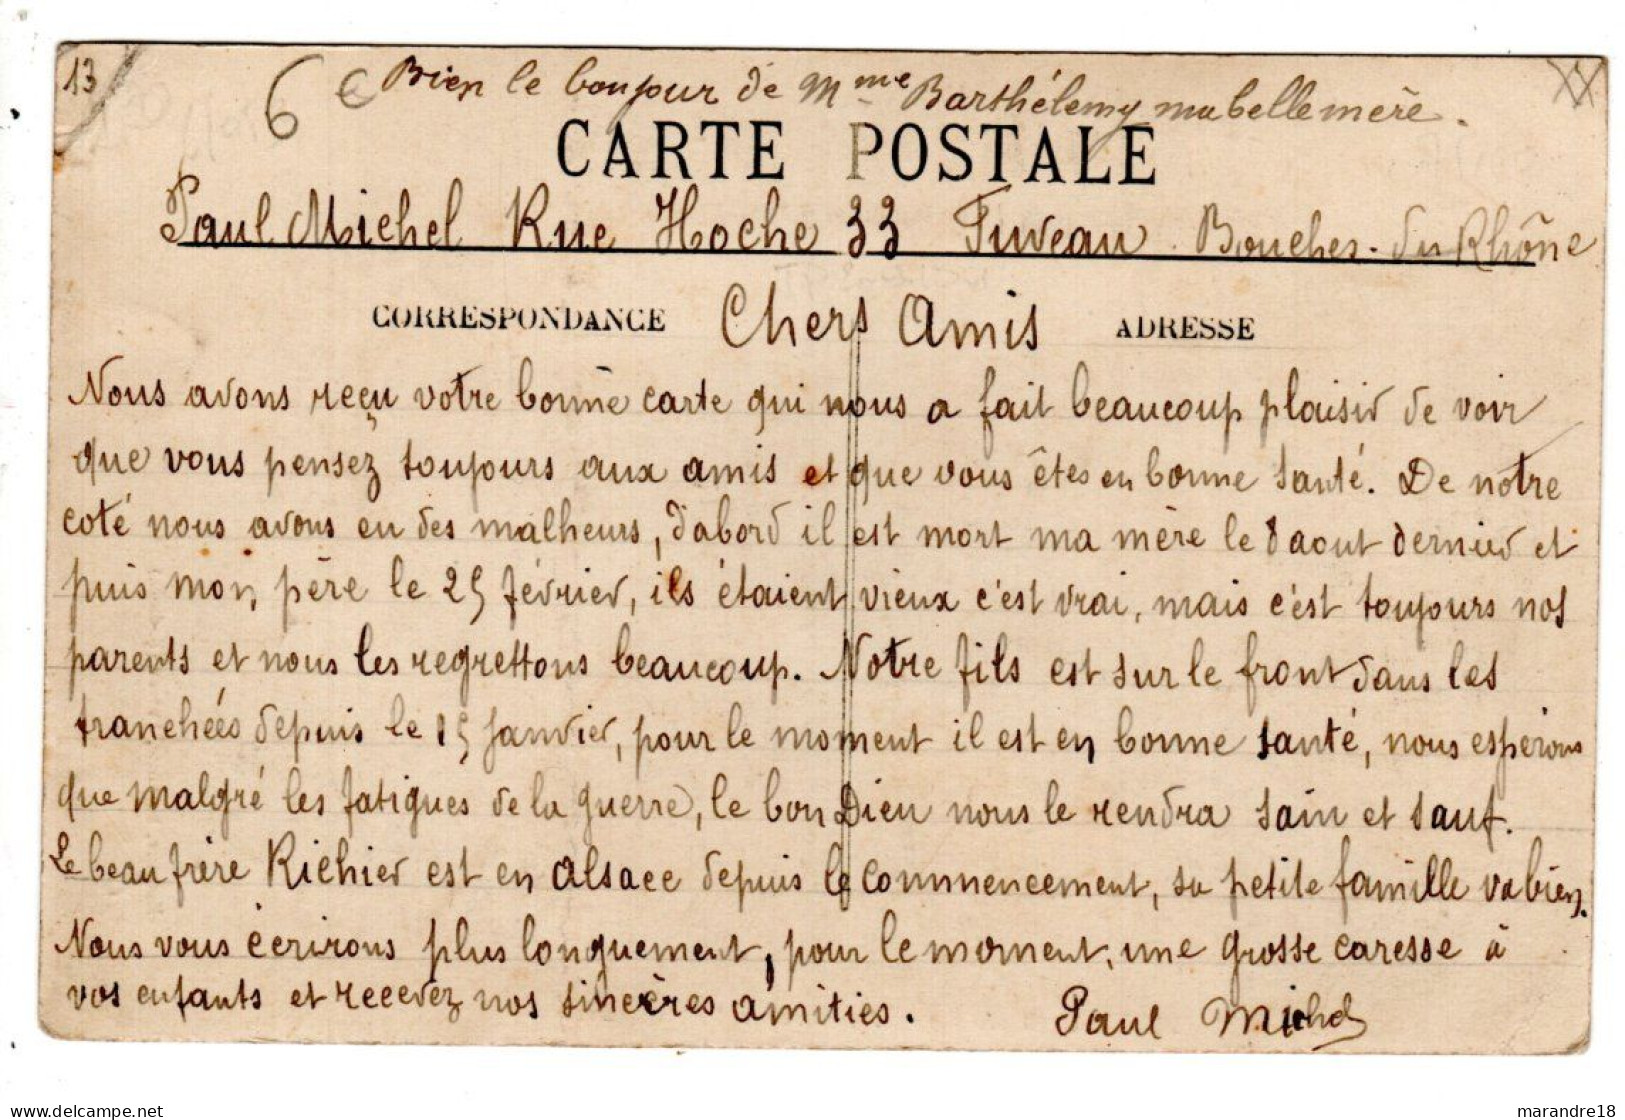 13
6 € Bien le bonjour de Mme Barthélemy ma belle mère.
CARTE POSTALE
Paul Michel Rue Hoche 33 Fuveau. Bouches-du Rhône
CORRESPONDANCE Chers Amis ADRESSE
Nous avons reçu votre bonne carte qui nous a fait beaucoup plaisir de voir
que vous pensez toujours aux amis et que vous êtes en bonne santé. De notre
coté nous avons eu des malheurs, d'abord il est mort ma mère le 8 aout dernier et
puis mon père le 25 février, ils étaient vieux c'est vrai, mais c'est toujours nos
parents et nous les regrettons beaucoup. Notre fils est sur le front dans les
tranchées depuis le 15 janvier, pour le moment il est en bonne santé, nous espérons
que malgré les fatigues de la guerre, le bon Dieu nous le rendra sain et sauf.
Le beau frère Richier est en Alsace depuis le commencement, sa petite famille va bien.
Nous vous écrirons plus longuement, pour le moment, une grosse caresse à
vos enfants et recevez nos sincères amitiés. Paul Michel
marandre18